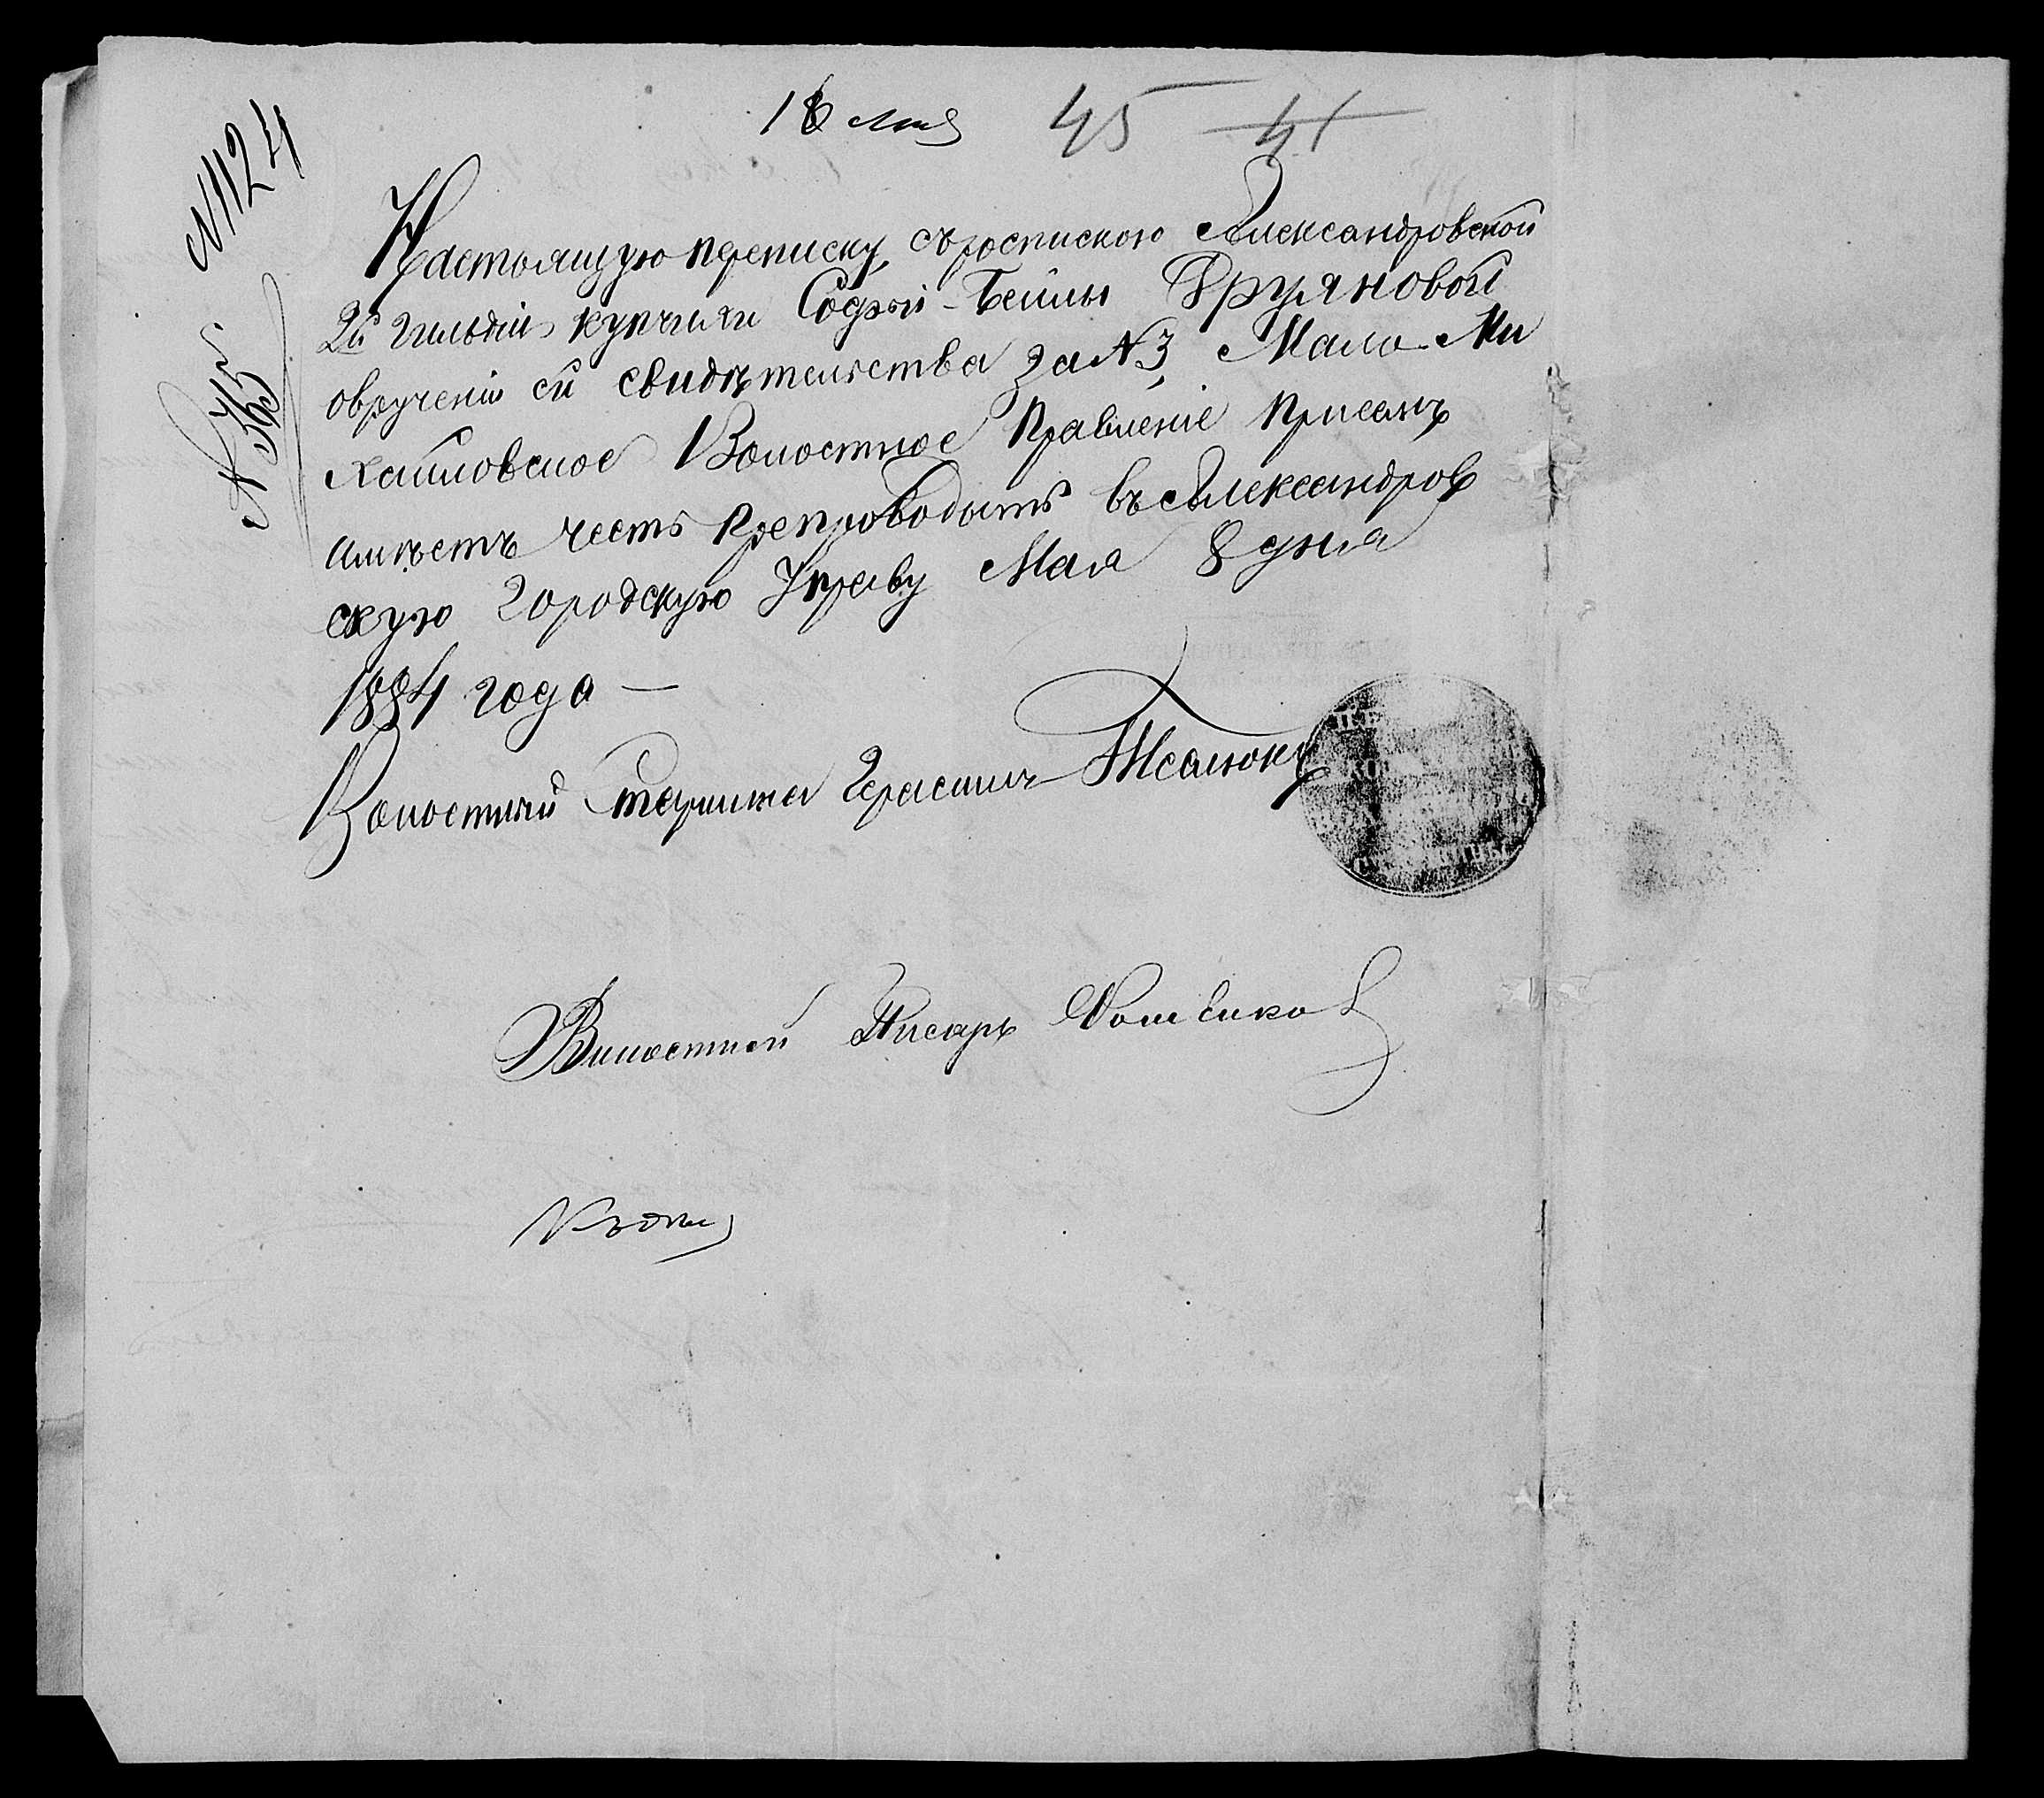 18 мая 45 41
N 1124
N 375
Настоящую переписку, съ роспискою Александровской
2й гильдіи купчихи Софьи-Бейлы Друяновой
овручении ей свидѣтельства за N3, Мало-Ми
хайловское Волостное Правленіе при семъ
имѣетъ честь препроводить въ Александров
скую Городскую Управу Мая 8 дня
1884 года —
Волостный Старшина Герасимъ
Волостной Писарь